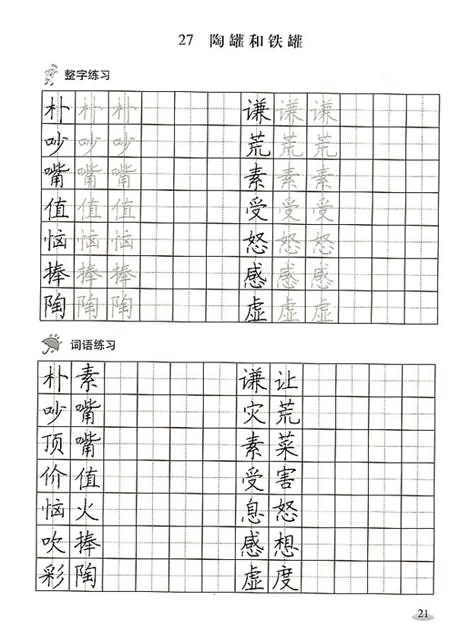 27 陶罐和铁罐
整字练习
朴 朴 朴 谦 谦 谦
吵 吵 吵 荒 荒 荒
嘴 嘴 嘴 素 素 素
值 值 值 受 受 受
恼 恼 恼 怒 怒 怒
捧 捧 捧 感 感 感
陶 陶 陶 虚 虚 虚
词语练习
朴素 谦让
吵嘴 灾荒
顶嘴 素菜
价值 受害
恼火 息怒
吹捧 感想
彩陶 虚度
21